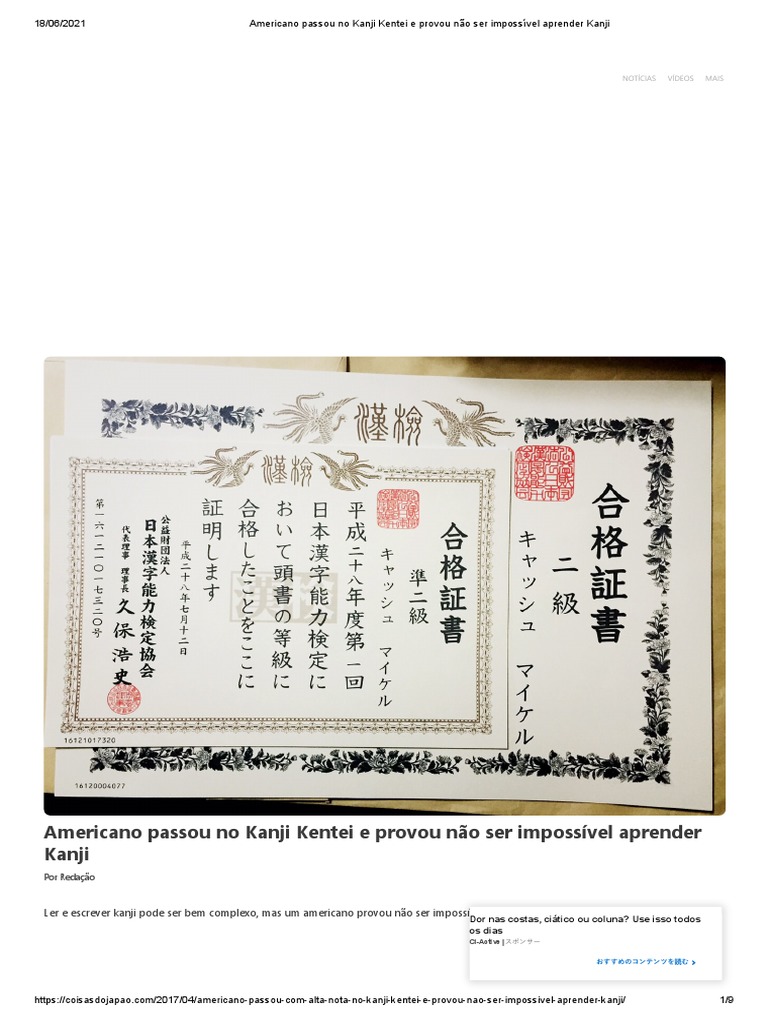 18/06/2021
Americano passou no Kanji Kentei e provou não ser impossível aprender Kanji
NOTÍCIAS VÍDEOS MAIS
漢検
合格証書
二級
キャッシュ マイケル
16120004077
漢検
合格証書
準二級
キャッシュ マイケル
平成二十八年度第一回
日本漢字能力検定に
おいて頭書の等級に
合格したことをここに
証明します
平成二十八年七月十二日
公益財団法人
日本漢字能力検定協会
代表理事 理事長 久保浩史
第一六一二一〇一七三二〇号
16121017320
Americano passou no Kanji Kentei e provou não ser impossível aprender
Kanji
Por Redação
Ler e escrever kanji pode ser bem complexo, mas um americano provou não ser impossí
Dor nas costas, ciático ou coluna? Use isso todos
os dias
CI-Active | スポンサー
おすすめのコンテンツを読む
https://coisasdojapao.com/2017/04/americano-passou-com-alta-nota-no-kanji-kentei-e-provou-nao-ser-impossivel-aprender-kanji/
1/9